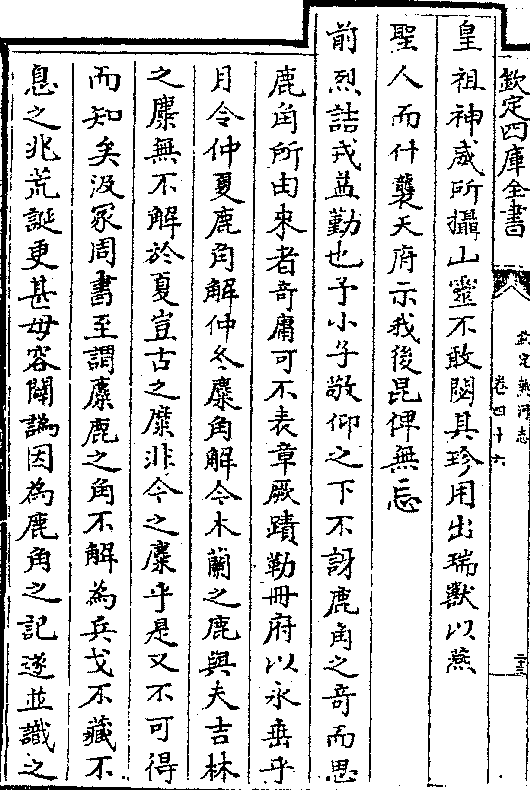 欽定四庫全書
欽定熱河志
卷四十六
皇祖神威所攝山靈不敢閟其珍用出瑞獸以燕
聖人而什襲天府示我後昆俾無忘
前烈詰戎益勤也予小子敬仰之下不訝鹿角之奇而思
鹿角所由來者奇庸可不表章厥蹟勒冊府以永垂乎
月令仲夏鹿角解仲冬麋角解今木蘭之鹿與夫吉林
之麋無不解於夏豈古之麋非今之麋乎是又不可得
而知矣汲冢周書至謂麋鹿之角不解為兵戈不藏不
息之兆荒誕更甚毋容闢譌因為鹿角之記遂並識之